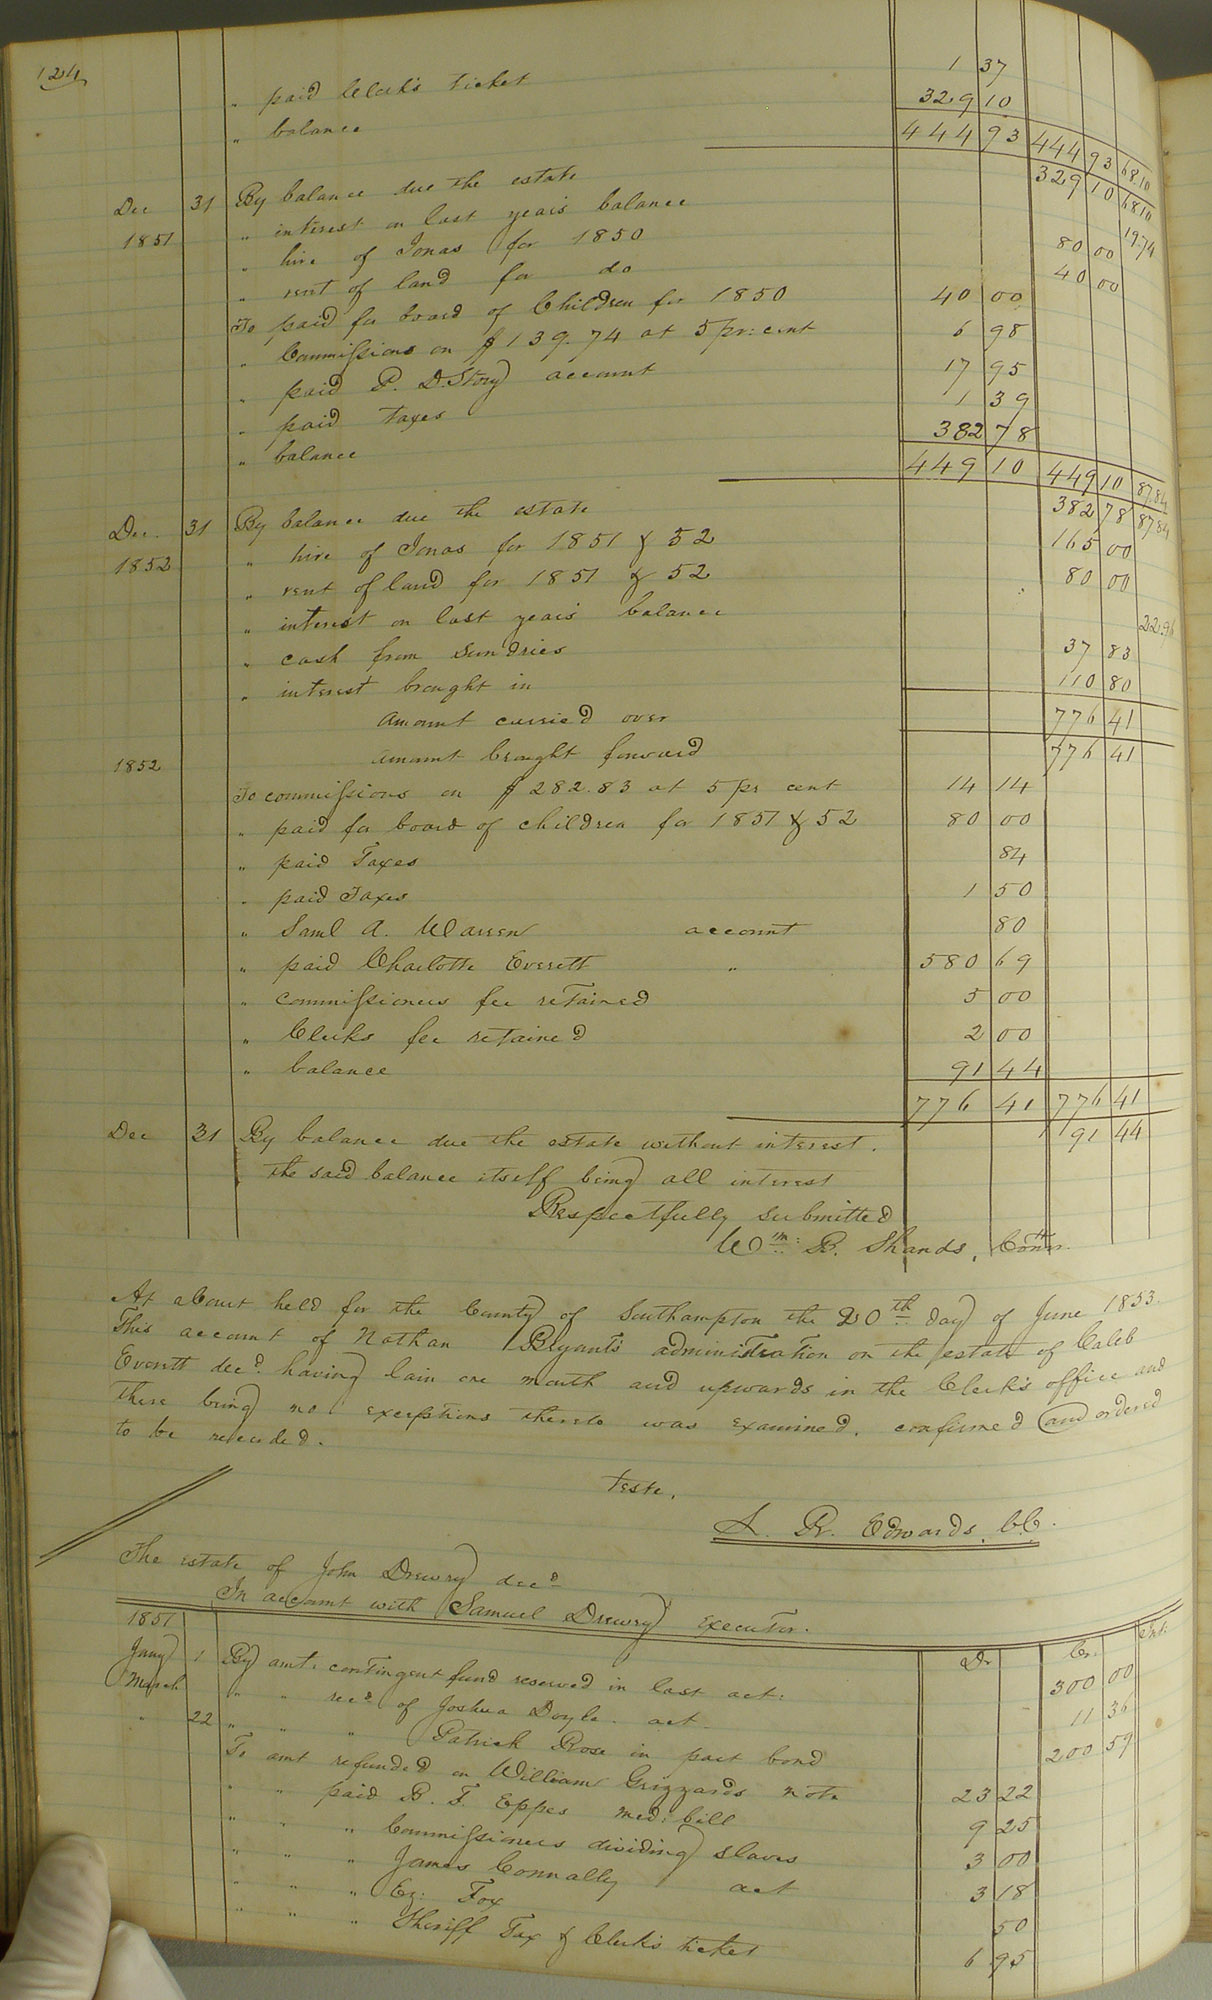 124
" paid Clerk's ticket 1 37
" balance 329 10
444 93 444 93 68.10
Dec 31 By balance due the estate 329 10 68.10
1851 " interest on last years balance 19.74
" hire of Jonas for 1850 80 00
" rent of land for do 40 00
To paid for board of Children for 1850 40 00
" Commissions on $139.74 at 5 pr: cent 6 98
" paid P. D. Story account 17 95
" paid taxes 1 39
" balance 382 78
449 10 449 10 87.84
Dec. 31 By balance due the estate 382 78 87.84
1852 " hire of Jonas for 1851 & 52 165 00
" rent of land for 1851 & 52 80 00
" interest on last years balance 22.96
" cash from Sundries 37 83
" interest brought in 110 80
Amount carried over 776 41
1852 Amount brought forward 776 41
To commissions on $282.83 at 5 pr cent 14 14
" paid for board of children for 1851 & 52 80 00
" paid Taxes 84
" paid Taxes 1 50
" Saml A. Warren account 80
" paid Charlotte Everett " 580 69
" commissioners fee retained 5 00
" Clerks fee retained 2 00
" balance 91 44
776 41 776 41
Dec 31 By balance due the estate without interest. 91 44
the said balance itself being all interest
Respectfully submitted
Wm: B. Shands, Comr.
At a Court held for the County of Southampton the 20th day of June 1853.
This account of Nathan Bryant's administration on the estate of Caleb
Everett decd. having lain one month and upwards in the Clerk's office and
there being no exceptions thereto was examined, confirmed and ordered
to be recorded.
Teste,
L. R. Edwards, C.C.
The estate of John Drewry decd
In account with Samuel Drewry Executor.
1851 Dr Cr. Int:
Jany 1 By amt: contingent fund reserved in last act: 300 00
March " " recd of Joshua Doyle. act. 11 36
" 22 " " " Patrick Rose in part bond 200 59
To amt refunded on William Grizzards note 23 22
" " paid B. F. Eppes med: bill 9 25
" " " Commissioners dividing slaves 3 00
" " " James Connally act 3 18
" " " Ez: Fox 50
" " " Sheriff Tax & Clerk's ticket 6 95